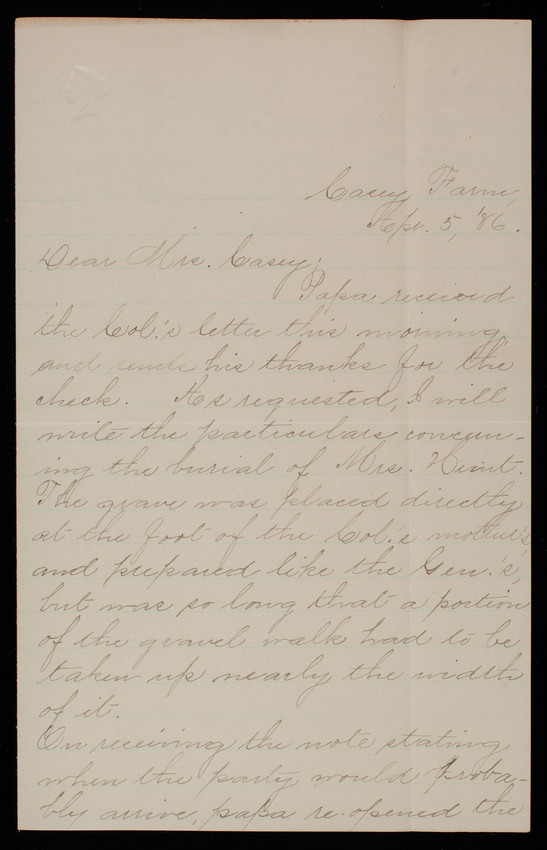 Casey Farm,
Apr. 5, '86.
Dear Mrs. Casey;
Papa received
the Col.'s letter this morning
and sends his thanks for the
check. As requested, I will
write the particulars concern-
ing the burial of Mrs. Hunt.
The grave was placed directly
at the foot of the Col.'s mother's
and prepared like the Gen.'s,
but was so long that a portion
of the gravel walk had to be
taken up nearly the width
of it.
On receiving the note stating
when the party would proba-
bly arrive, papa re-opened the